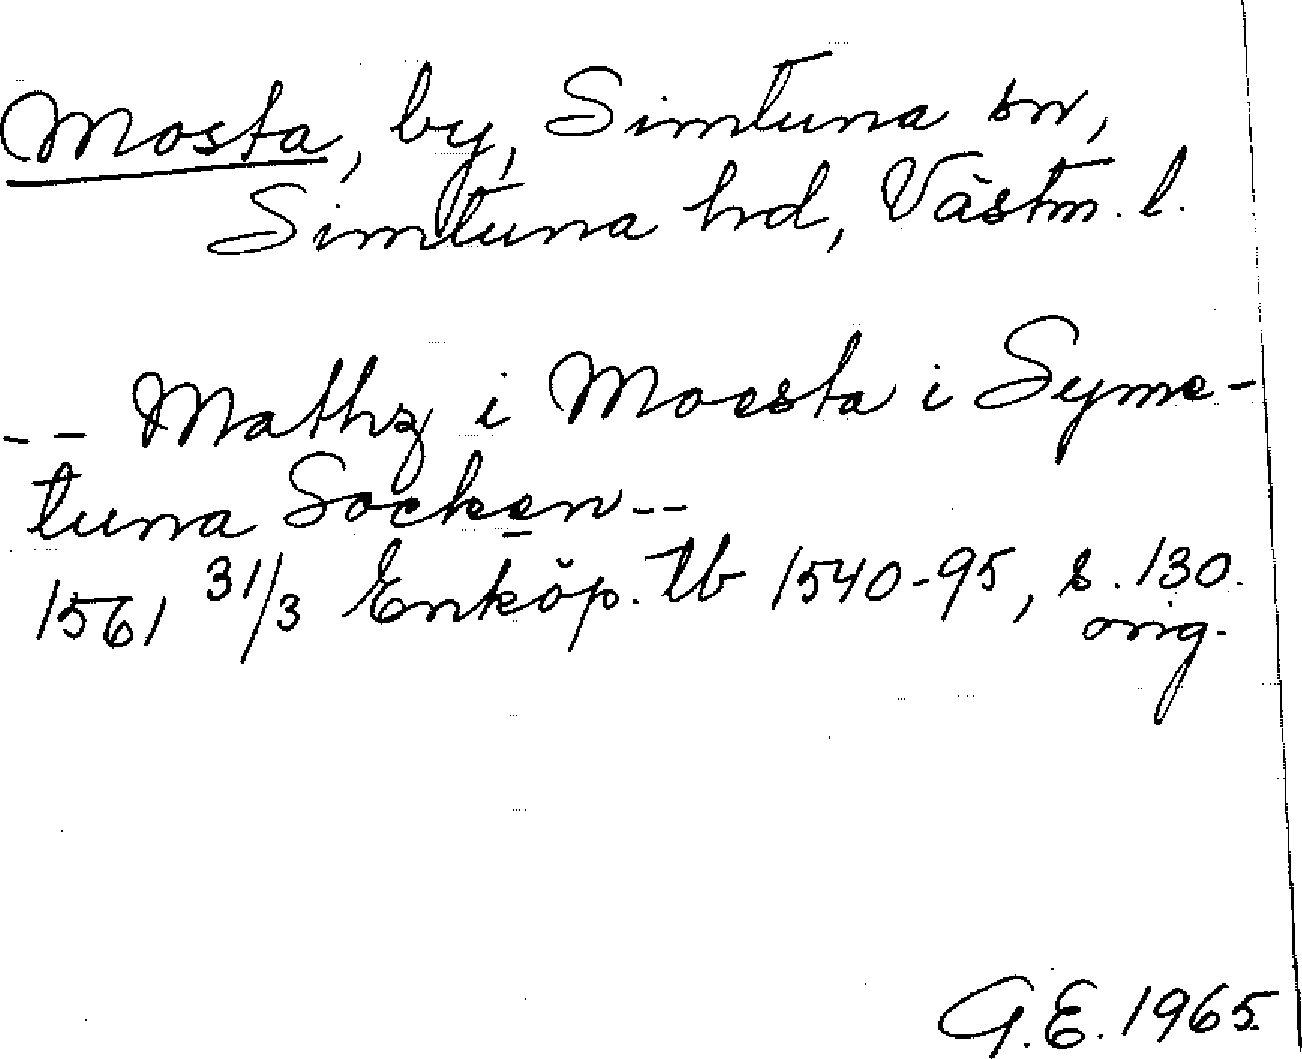 Mosta, by, Simtuna sn,
Simtuna hd, Västm. l.
-- Mathz i Moesta i Syme-
tuna Socken--
1561 31/3 Enköp. tb 1540-95, s. 130.
orig.
G.E. 1965.